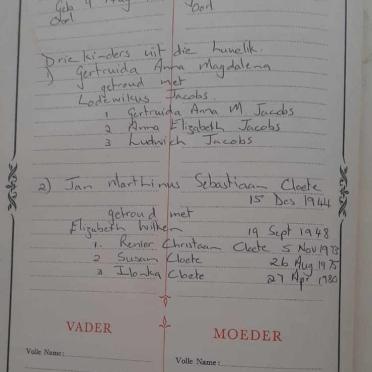 Drie kinders uit die huwelik.
1) Gertruida Anna Magdalena
getroud met
Lodewikus Jacobs.
1 Gertruida Anna M Jacobs
2 Anna Elizabeth Jacobs
3 Ludwich Jacobs
2) Jan Marthinus Sebastiaan Cloete
15 Des 1944
getroud met
Elizabeth 19 Sept 1948
1. Renier Christiaan Cloete 5 Nov 1973
2 Susan Cloete 26 Aug 1975
3 Ilonka Cloete 27 Apr 1980
VADER MOEDER
Volle Name: Volle Name: